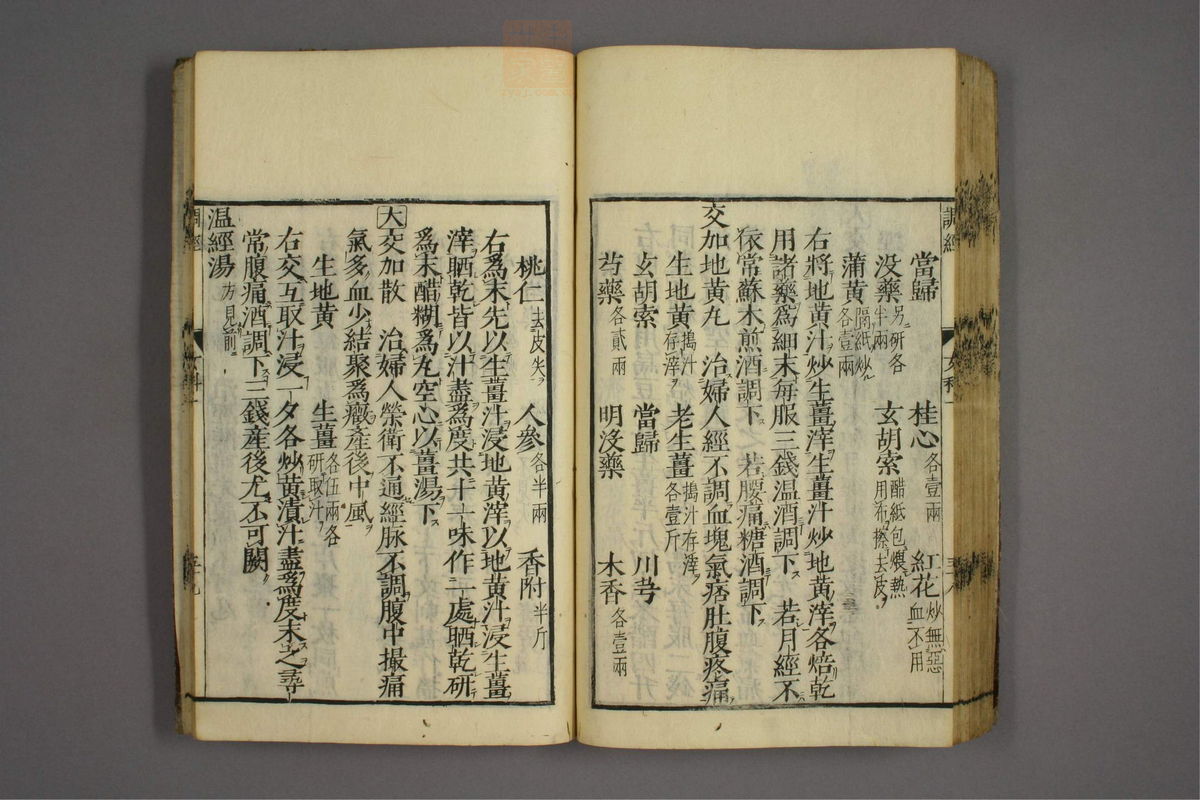 當歸　桂心各壹兩　紅花炒無惡血不用
没藥另研各半兩　玄胡索醋紙包煨熟用布擦去皮
蒲黄隔紙炒各壹兩
右將地黄汁炒生薑滓生薑汁炒地黄滓各焙乾
用諸藥為細末每服三錢温酒調下　若月經不
依常蘇木煎酒調下　若腰痛糖酒調下
交加地黄丸　治婦人經不調血塊氣痞肚腹疼痛
生地黄搗汁存滓　老生薑搗汁存滓各壹斤
玄胡索　當歸　川芎
芍藥各貳兩　明没藥　木香各壹兩
調經
女科一
桃仁去皮尖　人參各半兩　香附半斤
右為末先以生薑汁浸地黄滓以地黄汁浸生薑
滓晒乾皆以汁盡為度共十一味作一處晒乾研
為末醋糊為丸空心以薑湯下
大交加散　治婦人榮衛不通經脉不調腹中撮痛
氣多血少結聚為癥産後中風
生地黄　生薑各伍兩各研取汁
右交互取汁浸一夕各炒黄漬汁盡為度末之尋
常腹痛酒調下三錢産後尤不可闕
温經湯方見前
調經
女科一